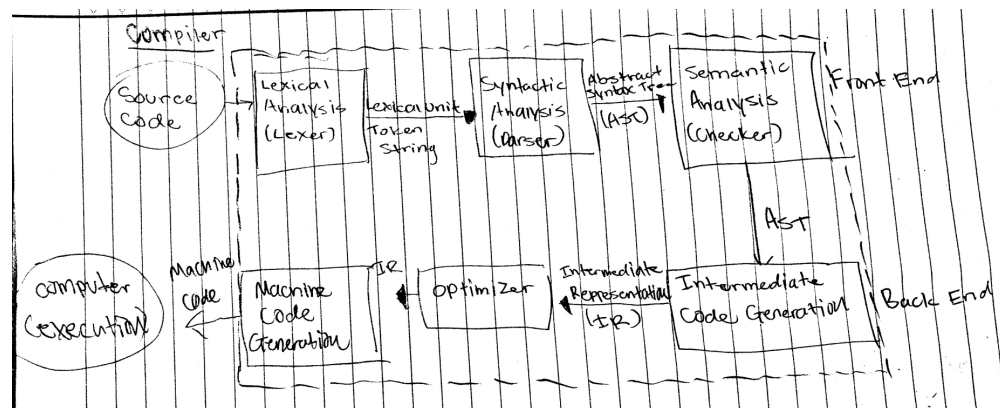 Compiler
Source
Code
Lexical
Analysis
(Lexer)
Lexical Unit
Token
String
Syntactic
Analysis
(Parser)
Abstract
Syntax Tree
(AST)
Semantic
Analysis
(Checker)
Front End
AST
Intermediate
Code Generation
Back End
Intermediate
Representation
(IR)
Optimizer
IR
Machine
Code
Generation
Machine
Code
Computer
(execution)